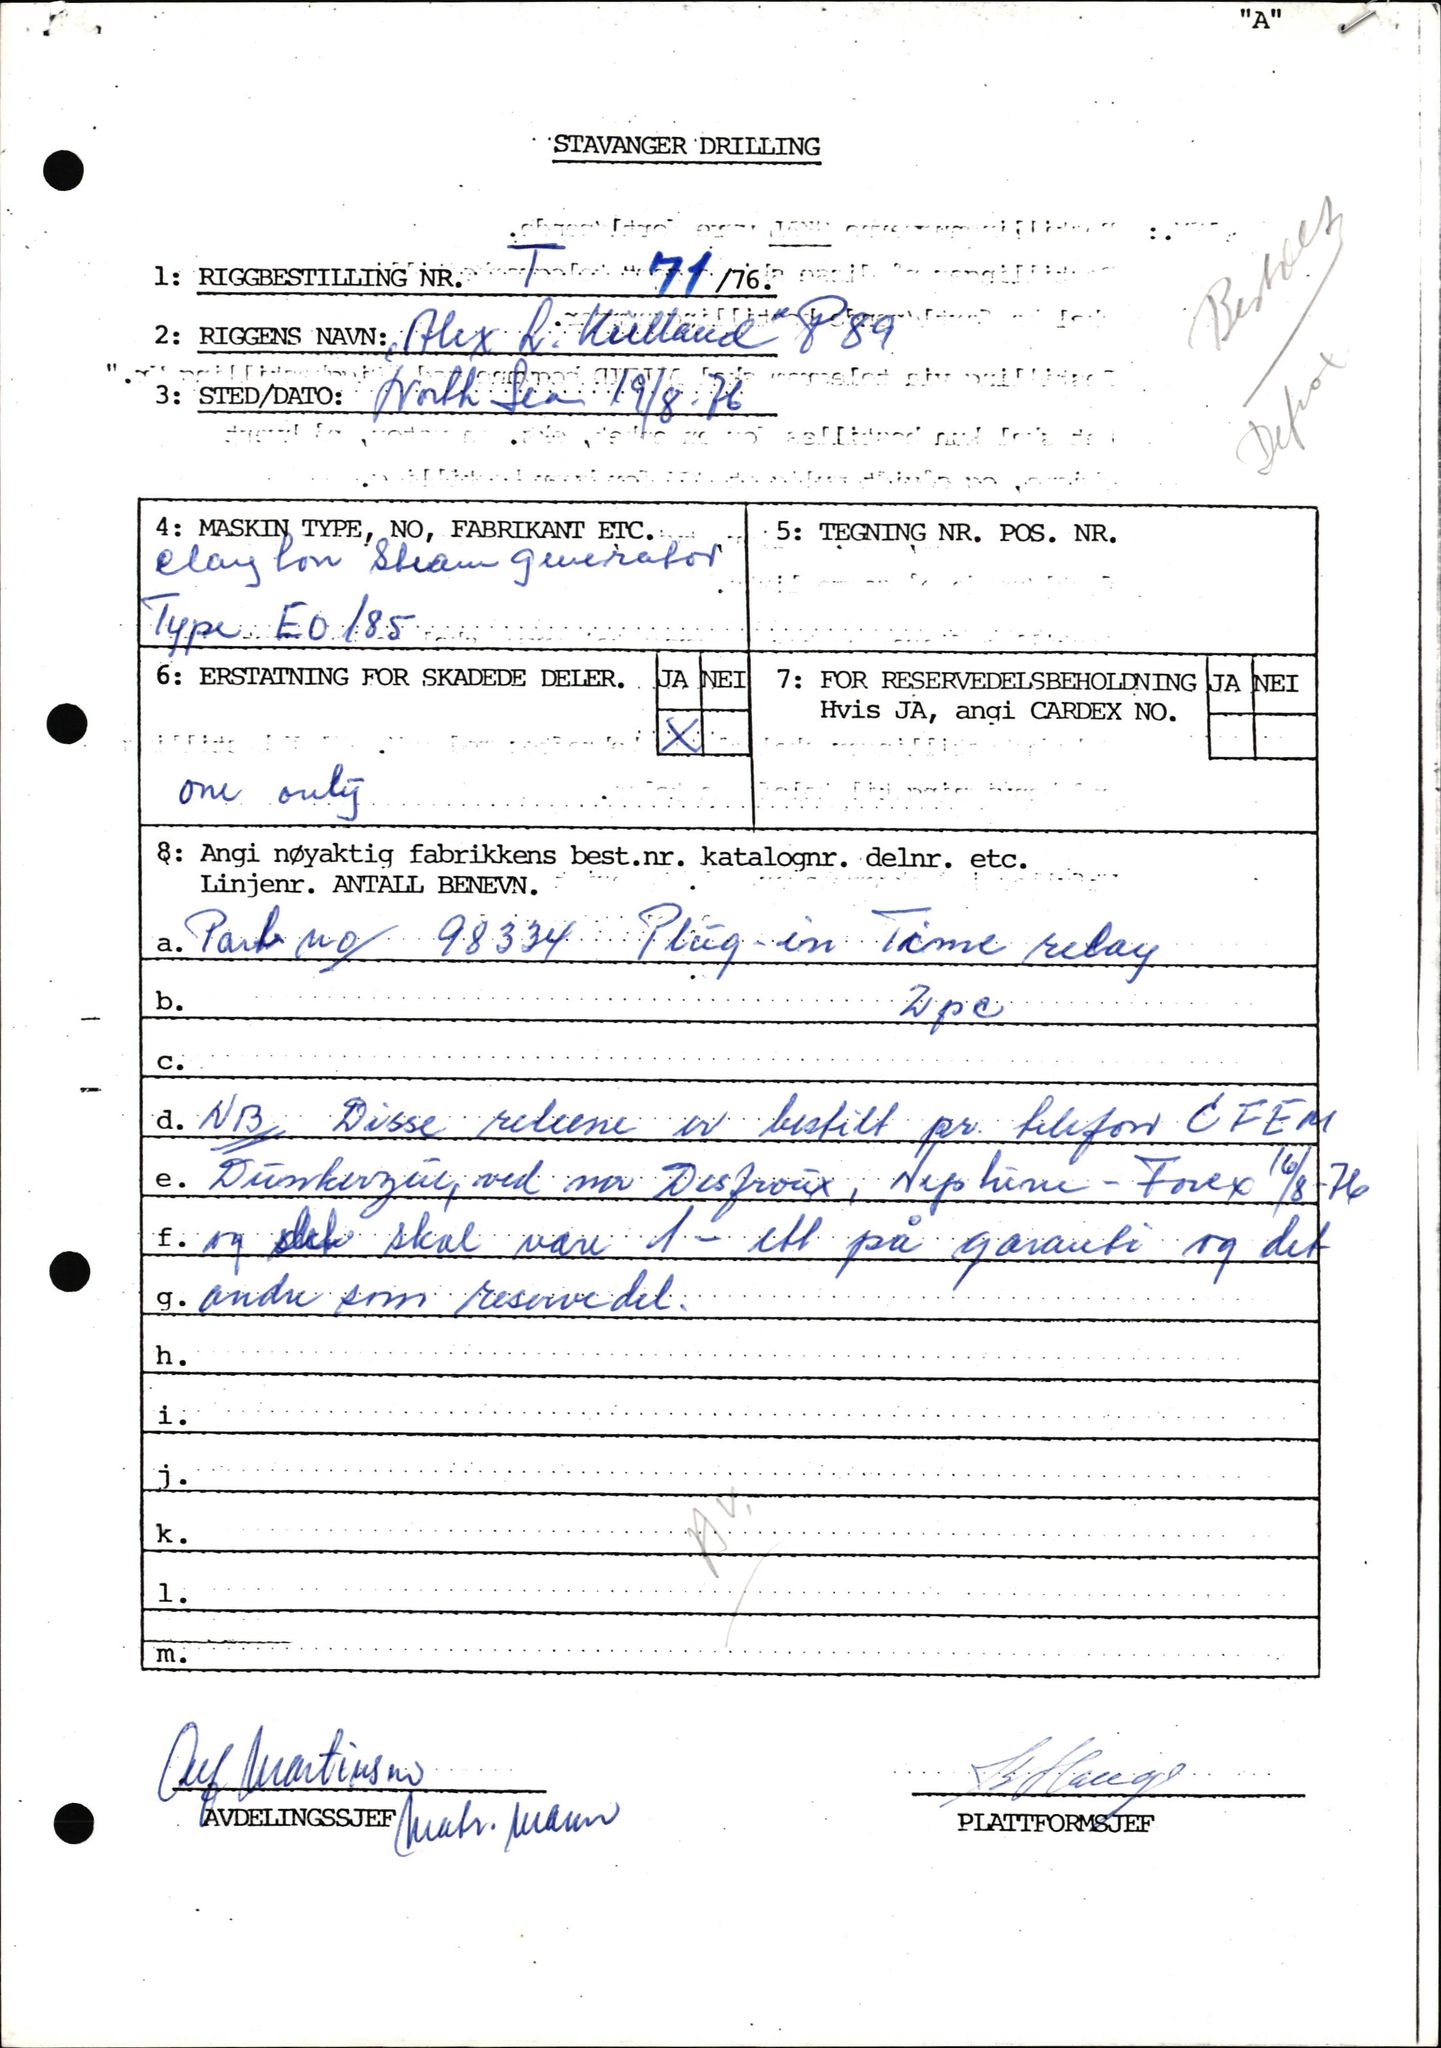 "A"
STAVANGER DRILLING
1: RIGGBESTILLING NR. T 71/76.
2: RIGGENS NAVN: "Alex L. Kielland" P 89
3: STED/DATO: North Sea 19/8-76
Bestilt
4: MASKIN TYPE, NO, FABRIKANT ETC.
Clayton Steam generator
Type EO 185
5: TEGNING NR. POS. NR.
6: ERSTATNING FOR SKADEDE DELER. JA NEI
X
one only
7: FOR RESERVEDELSBEHOLDNING JA NEI
Hvis JA, angi CARDEX NO.
8: Angi nøyaktig fabrikkens best.nr. katalognr. delnr. etc.
Linjenr. ANTALL BENEVN.
a. Part no 98334 Plug-in Time relay
b. 2 pc
c.
d. NB Disse releene er bestilt pr. telefon CFEM
e. Dunkerque, ved mr Desfroux, Neptune - Forex 16/8-76
f. og det skal være 1 - ett på garanti og det
g. andre som reservedel.
h.
i.
j.
k.
l.
m.
Martinsen
AVDELINGSSJEF
PLATTFORMSJEF